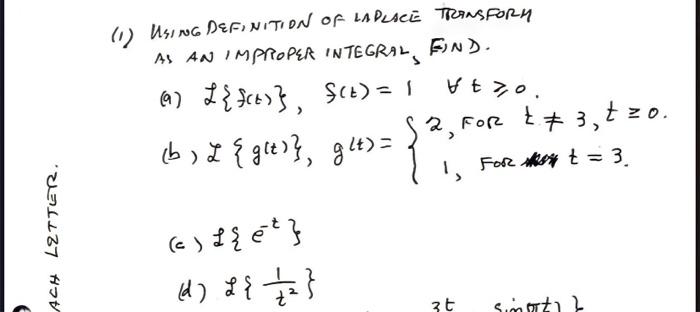 (1) USING DEFINITION OF LAPLACE TRANSFORM
AS AN IMPROPER INTEGRAL, FIND.
(a) ℒ{f(t)}, f(t) = 1 ∀ t ≥ 0.
(b) ℒ{g(t)}, g(t) = { 2, FOR t ≠ 3, t ≥ 0.
1, FOR t = 3.
(c) ℒ{e^-t}
(d) ℒ{1/t^2}
3t sin(πt)}
ACH LETTER.